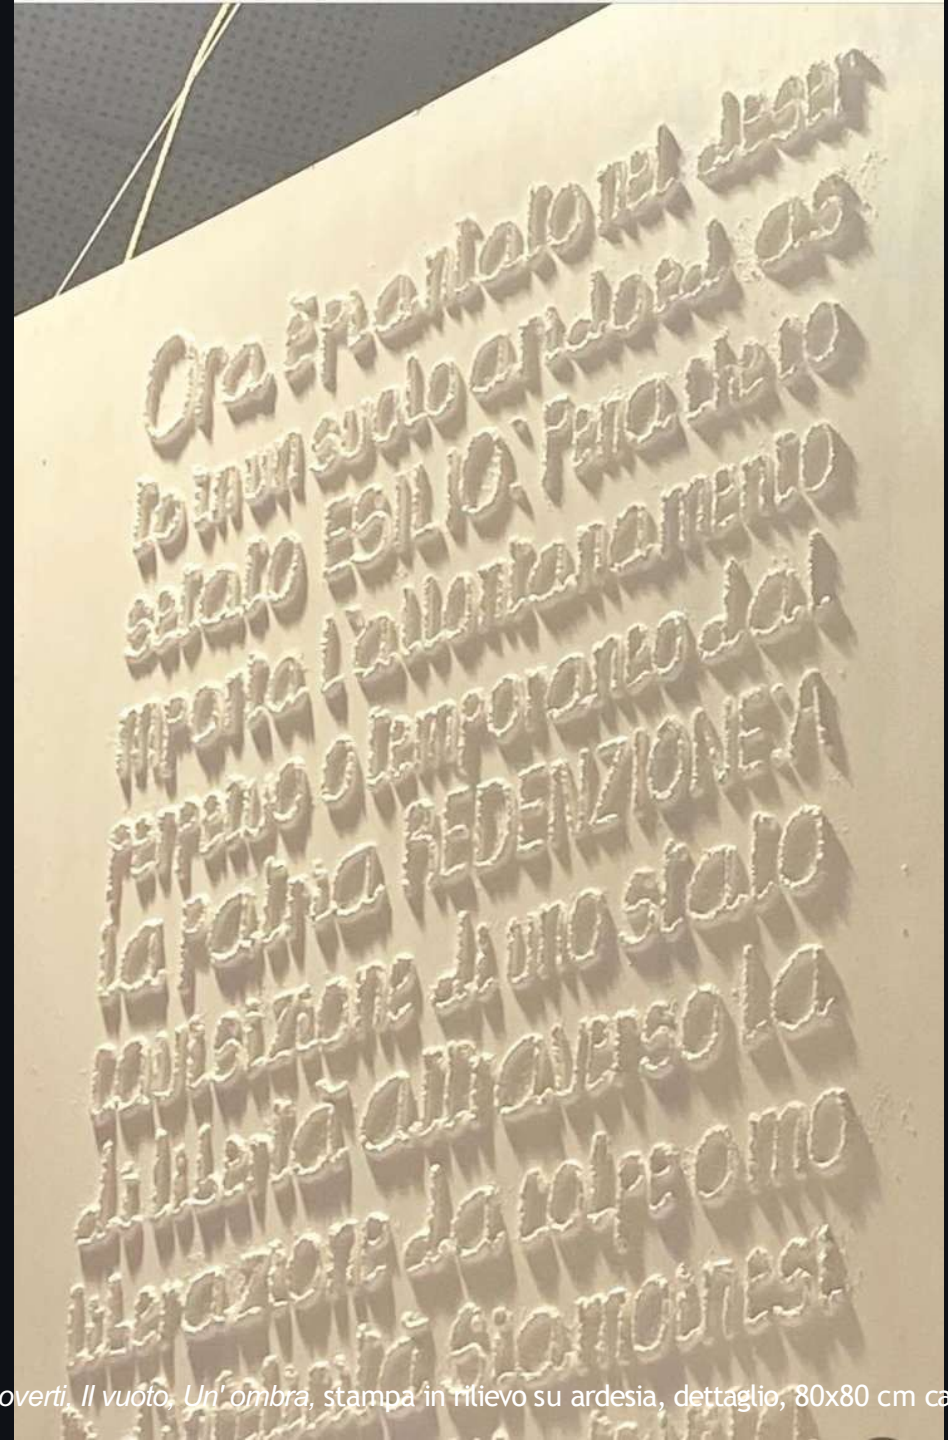 Ora è piantato nel deser
to in un suolo arido ed as
setato ESILIO: Pena che co
mporta l'allontanamento
perpetuo o temporaneo dal
la patria REDENZIONE: A
cquisizione di uno stato
di libertà attraverso la
liberazione da colpe o mo
Siamo inesi
overti, Il vuoto, Un' ombra, stampa in rilievo su ardesia, dettaglio, 80x80 cm ca